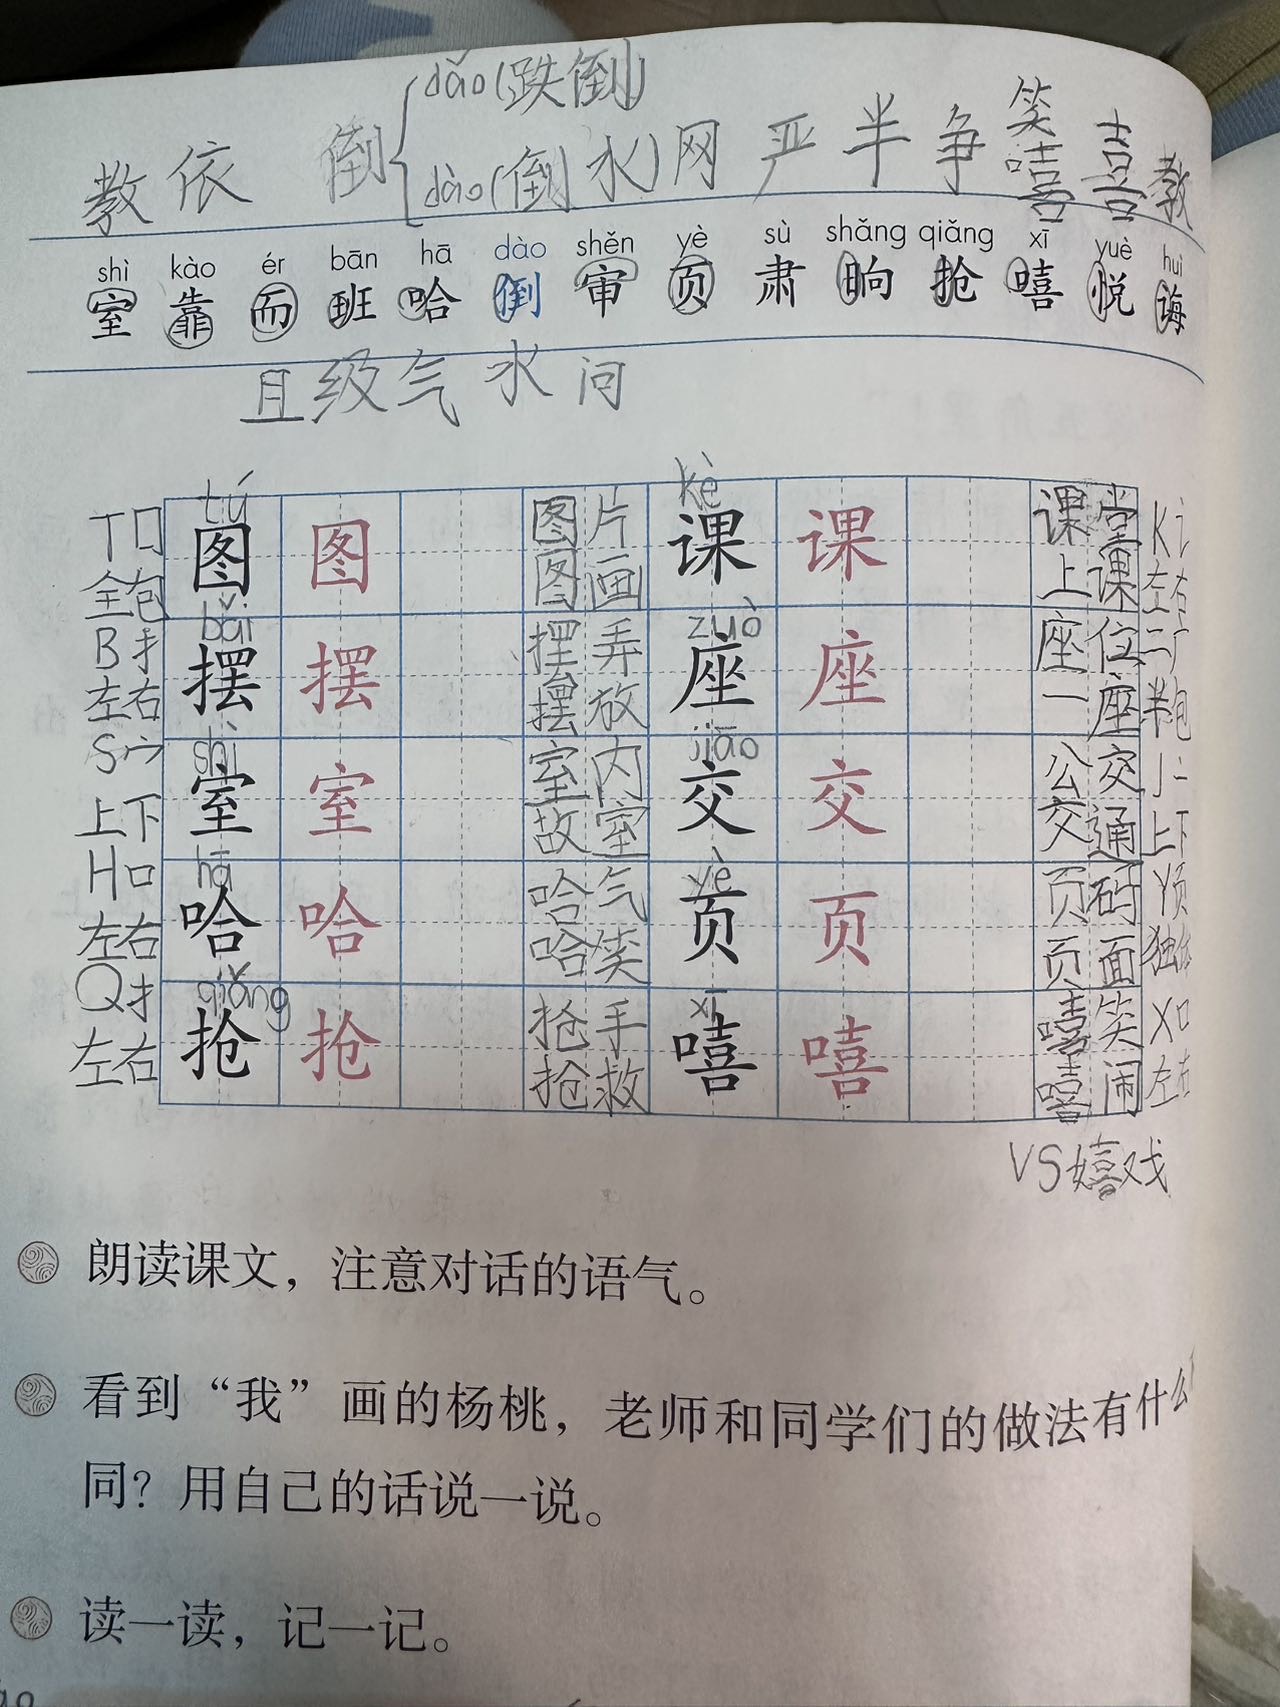 dǎo(跌倒)
教 依 倒 dào(倒水) 网 严 半 争 笑嘻 喜 教
shì kào ér bān hā dào shěn yè sù shǎng qiǎng xī yuè huì
室 靠 而 班 哈 倒 审 页 肃 晌 抢 嘻 悦 诲
且 级 气 水 问
tú kè
T口 图 图 图片 课 课 课堂 K讠
全包 图画 上课 左右
bǎi zuò
B扌 摆 摆 摆弄 座 座 座位 二广
左右 摆放 一座 半包
shì jiāo
S宀 室 室 室内 交 交 公交 J亠
上下 故室 交通 上下
hā yè
H口 哈 哈 哈气 页 页 页码 Y页
左右 哈笑 页面 独体
qiǎng xī
Q扌 抢 抢 抢手 嘻 嘻 嘻笑 X口
左右 抢救 嘻闹 左右
VS嬉戏
朗读课文，注意对话的语气。
看到“我”画的杨桃，老师和同学们的做法有什么
同？用自己的话说一说。
读一读，记一记。